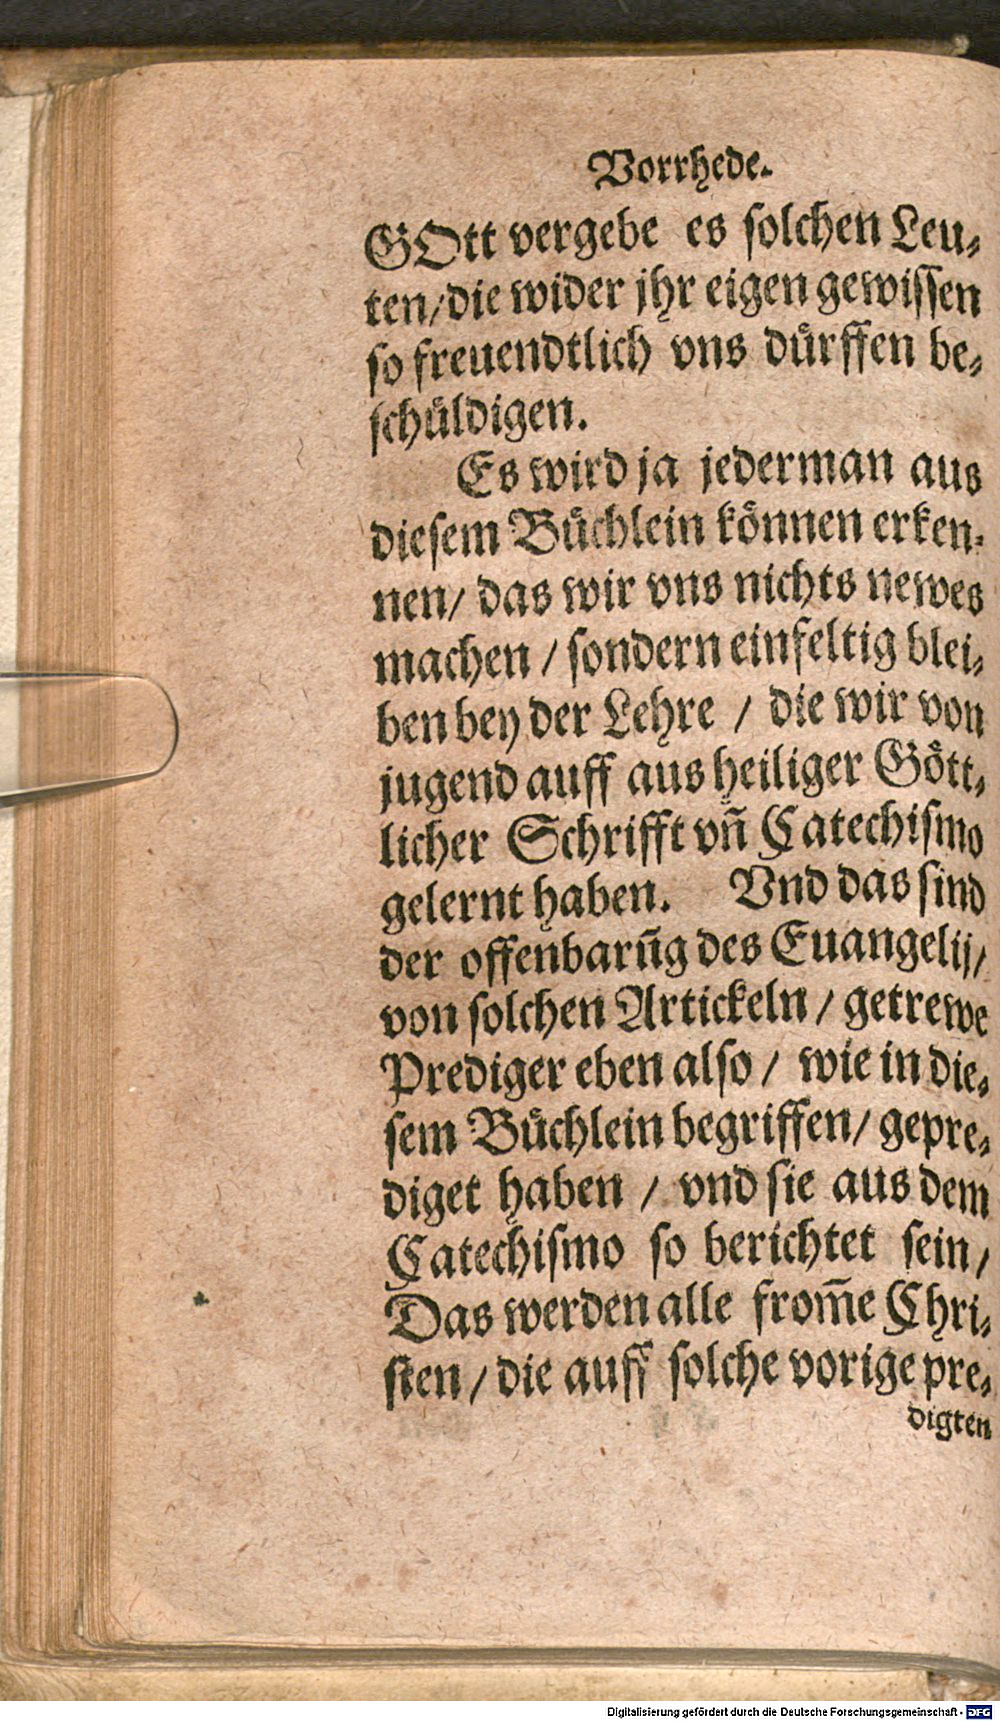 Vorrhede.
GOtt vergebe es solchen Leu⸗
ten/die wider jhr eigen gewissen
so freuendtlich vns duͤrffen be⸗
schuͤldigen.
Es wird ja jederman aus
diesem Buͤchlein koͤnnen erken⸗
nen/ das wir vns nichts newes
machen / sondern einfeltig blei⸗
ben bey der Lehre / die wir von
jugend auff aus heiliger Goͤtt⸗
licher Schrifft vñ Catechismo
gelernt haben. Vnd das sind
der offenbarũg des Euangelij/
von solchen Artickeln / getrewe
Prediger eben also / wie in die⸗
sem Buͤchlein begriffen/ gepre⸗
diget haben / vnd sie aus dem
Catechismo so berichtet sein/
Das werden alle from̃e Chri⸗
sten / die auff solche vorige pre⸗
digten
Digitalisierung gefördert durch die Deutsche Forschungsgemeinschaft - DFG